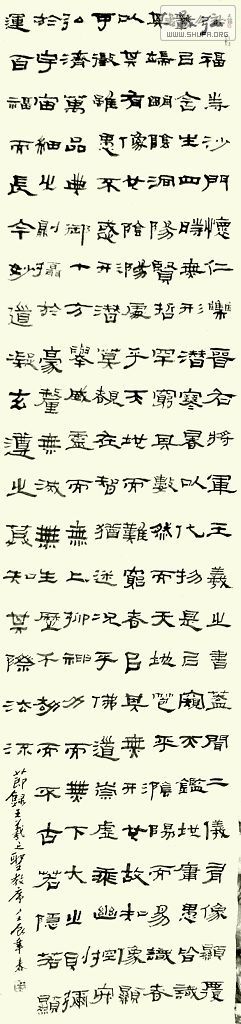 WWW.SHUFA.ORG
弘福寺沙門懷仁集晉右將軍王羲之書蓋聞二儀有像顯覆
載以含生四時無形潛寒暑以化物是以窺天鑑地庸愚皆識
其端明陰洞陽賢哲罕窮其數然而天地苞乎陰陽而易識者
以其有像也陰陽處乎天地而難窮者以其無形也故知像顯
可徵雖愚不惑形潛莫覩在智猶迷況乎佛道崇虛乘幽控寂
弘濟萬品典御十方舉威靈而無上抑神力而無下大之則彌
於宇宙細之則攝於豪釐無滅無生歷千劫而不古若隱若顯
運百福而長今妙道凝玄遵之莫知其際法流
節錄王羲之聖教序壬辰年春